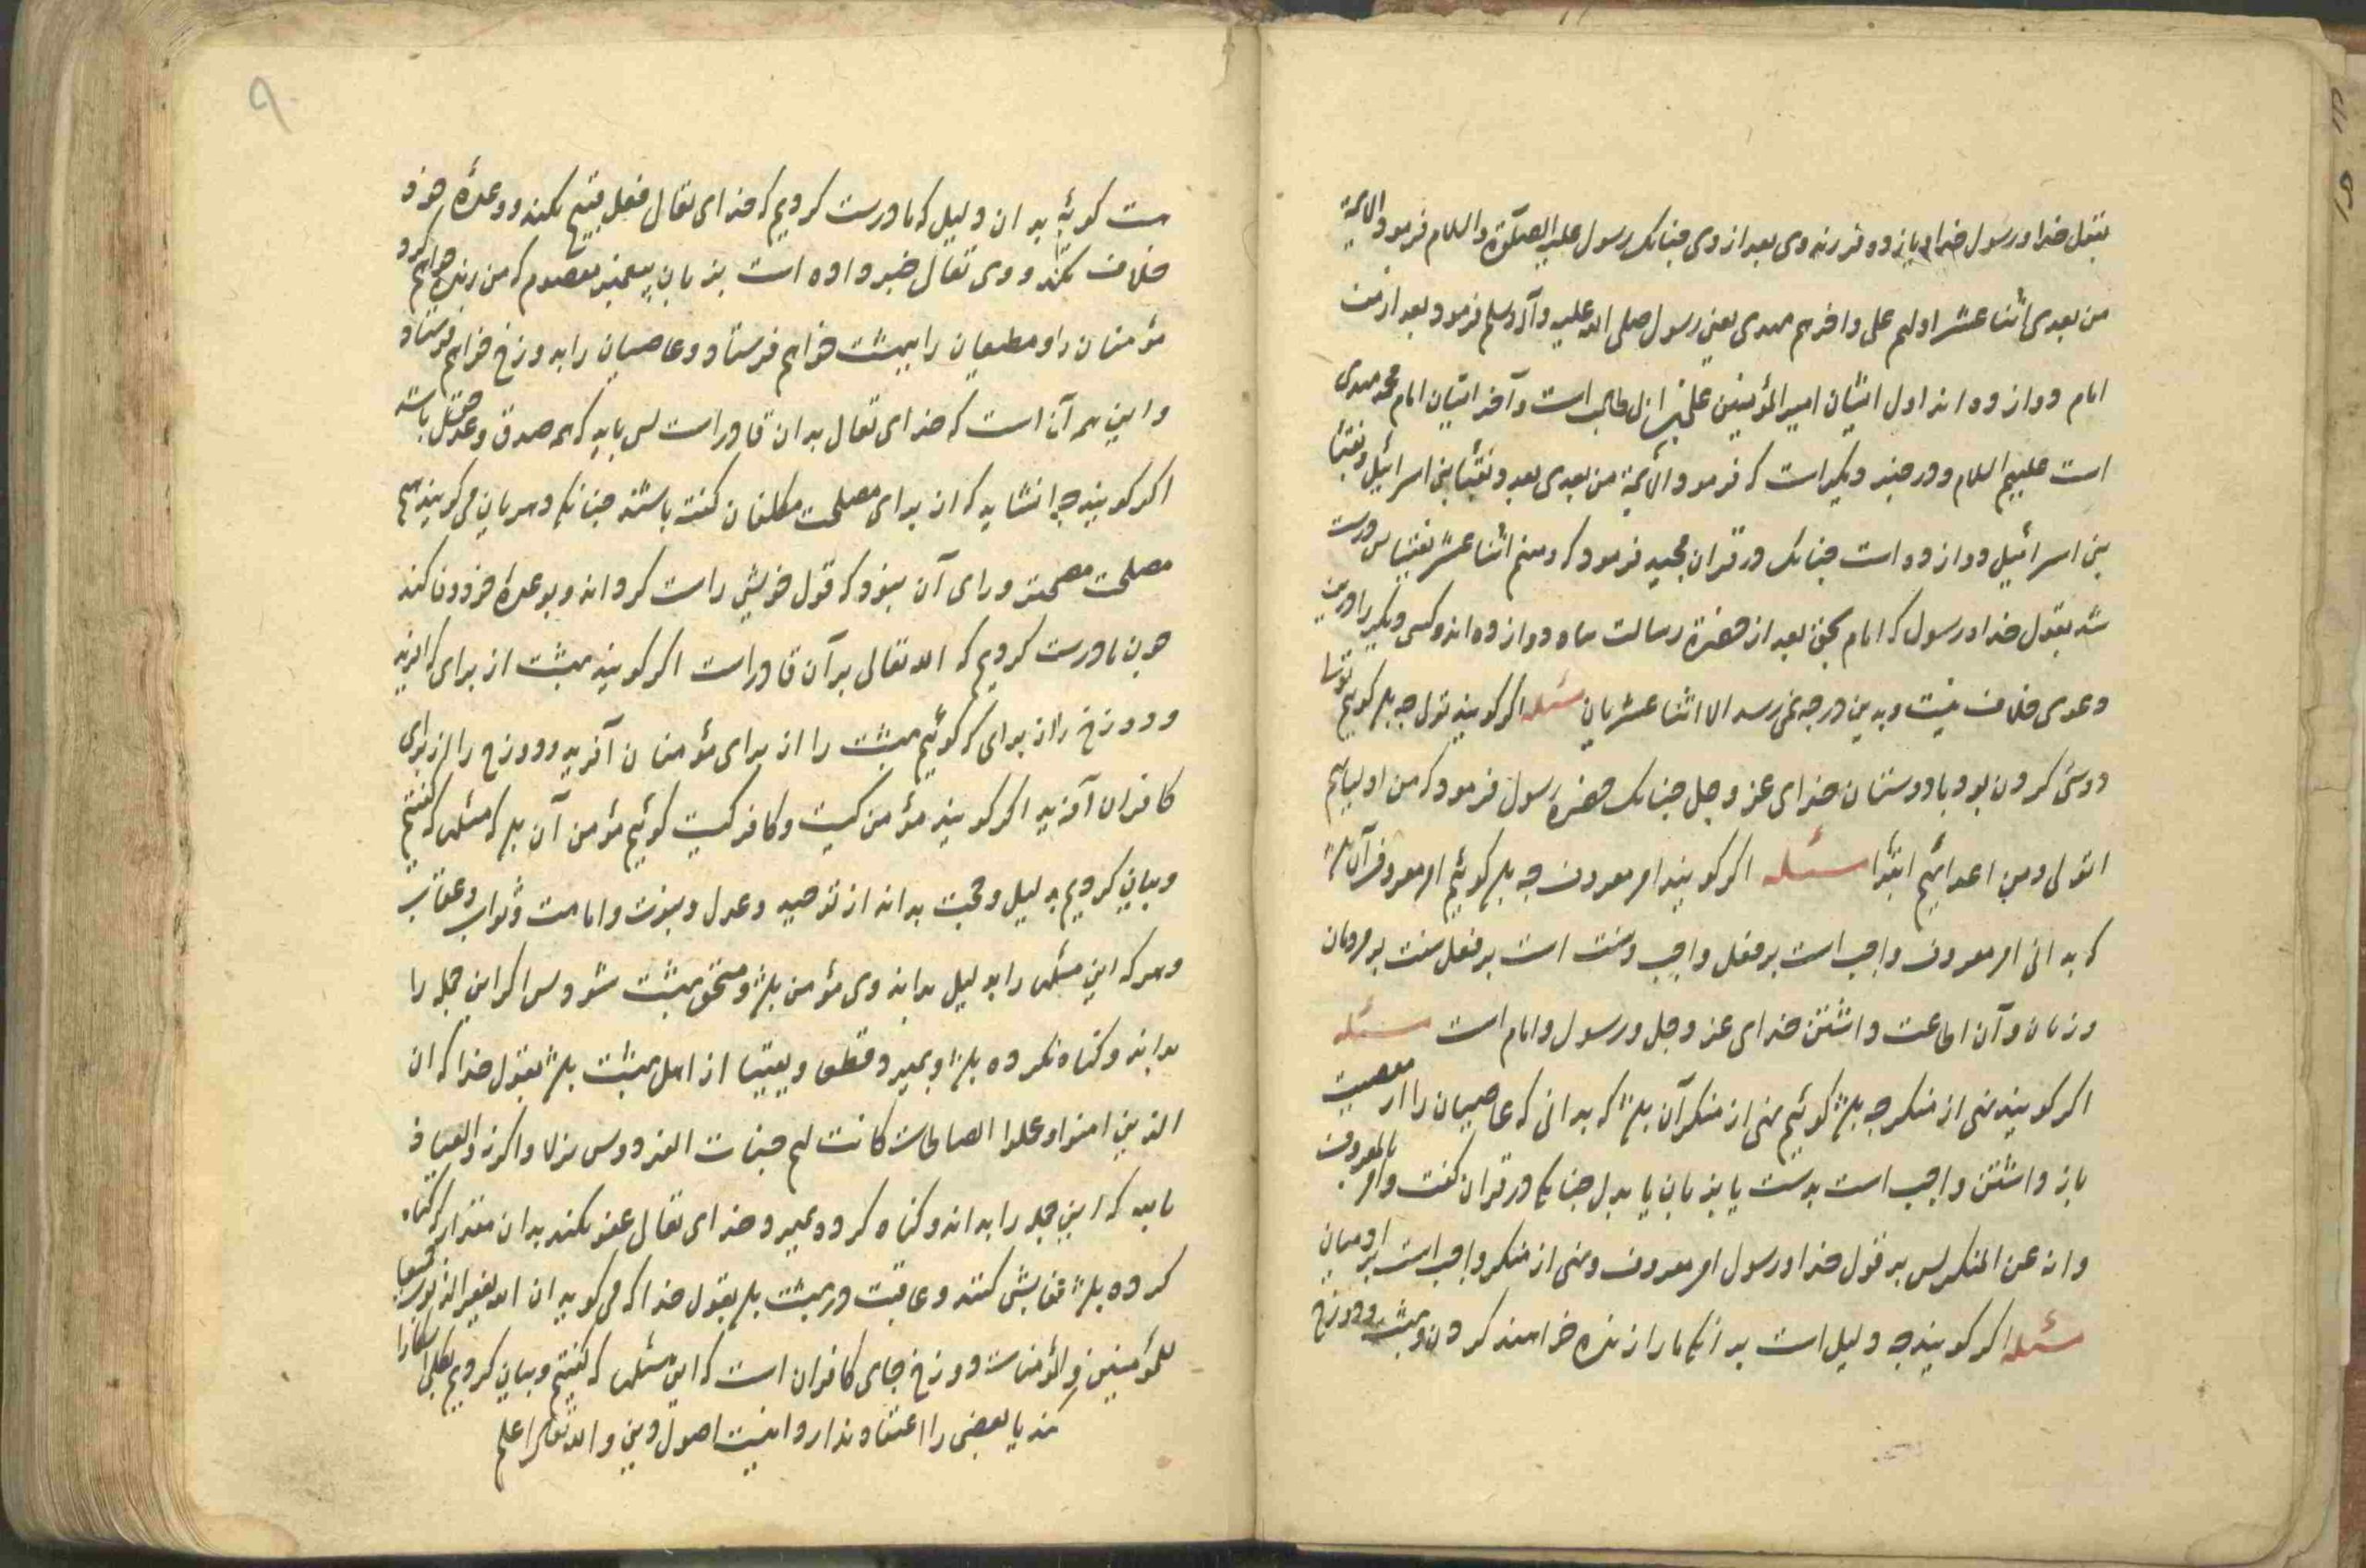 بقول خدا و رسول خدا و یازده فرزند وی بعد از وی چنانک رسول علیه الصلوة والسلام فرمود الائمة
من بعدی اثنا عشر اولهم علی و اخرهم مهدی یعنی رسول صلی الله علیه وآله وسلم فرمود بعد از من
امام دوازده اند اول ایشان امیر المؤمنین علی بن ابی طالب است و آخر ایشان امام محمد مهدی
است علیهم السلام و در خبر دیگر است که فرمود الائمة من بعدی بعدد نقبا بنی اسرائیل و نقبا
بنی اسرائیل دوازده است چنانک در قران مجید فرمود که و منهم اثنا عشر نقیبا پس درست
شد بقول خدا و رسول که امام بحق بعد از حضرة رسالت پناه دوازده اند و کسی دیگر را درین
دعوی خلاف نیست و بدین درجه نمی رسد الا اثنا عشریان مسئله اگر گویند تولا چه باشد گوییم تولا
دوستی کردن بود با دوستان خدای عز و جل چنانک حضرة رسول فرمود که من اولیائهم
اتولی و من اعدائهم اتبرا مسئله اگر گویند امر معروف چه باشد گوئیم امر معروف آن باشد
که بدانی امر معروف واجب است بر فعل واجب و سنت است بر فعل سنت بر مردمان
و زنان و آن اطاعت داشتن خدای عز و جل و رسول و امام است مسئله
اگر گویند نهی از منکر چه باشد گوئیم نهی از منکر آن باشد که بدانی که عاصیان را از معصیت
باز داشتن واجب است بدست یا بزبان یا بدل چنانکه در قران گفت وامر بالمعروف
وانه عن المنکر پس بر قول خدا و رسول امر معروف و نهی از منکر واجب است بر آدمیان
مسئله اگر گویند چه دلیل است بر آنکه ما را زنده خواهند کردن و بهشت و دوزخ
۹
ست گوئیم بدان دلیل که ما درست کردیم که خدای تعالی فعل قبیح نکند و وعدۀ خود
خلاف نکند و وی تعالی خبر داده است بزبان پیغمبر معصوم که من زنده خواهم کرد
مؤمنان را و مطیعان را ببهشت خواهم فرستاد و عاصیان را بدوزخ خواهم فرستاد
و این هر آن است که خدای تعالی بدان قادر است پس باید که هم صدق و عدل باشد
اگر گویند چرا نشاید که از برای مصلحت مکلفان گفته باشد چنانکه دهریان می گویند هیچ
مصلحت ورای آن نبود که قول خویش راست گرداند و بوعدۀ خود وفا کند
چون ما درست کردیم که الله تعالی بر آن قادر است اگر گویند بهشت از برای که آفرید
و دوزخ را از برای که گوئیم بهشت را از برای مؤمنان آفرید و دوزخ را از برای
کافران آفرید اگر گویند مؤمن کیست و کافر کیست گوئیم مؤمن آن باشد که مسئلها که گفتیم
و بیان کردیم بدلیل و حجت بداند از توحید و عدل و نبوت و امامت و ثواب و عقاب
و هر که این مسئلها را بدلیل بداند وی مؤمن باشد و مستحق بهشت شود پس اگر این جمله را
بداند و گناه نکرده باشد و بمیرد قطعا و یقینا از اهل بهشت باشد بقول خدا که ان
الذین امنوا وعملوا الصالحات کانت لهم جنات الفردوس نزلا و اگر نه و العیاذ
بالله که این جمله را بداند و گناه کرده بمیرد و خدای تعالی عفو نکند بدان مقدار که گناه
کرده باشد عذابش کنند و عاقبت در بهشت باشد بقول خدا که می گوید ان الله یغفر الذنوب جمیعا
للمؤمنین والمؤمنات و دوزخ جای کافران است که این مسئلها که گفتیم و بیان کردیم بکلی انکار
کند یا بعضی را اعتقاد ندارد اینست اصول دین و الله تعالی اعلم